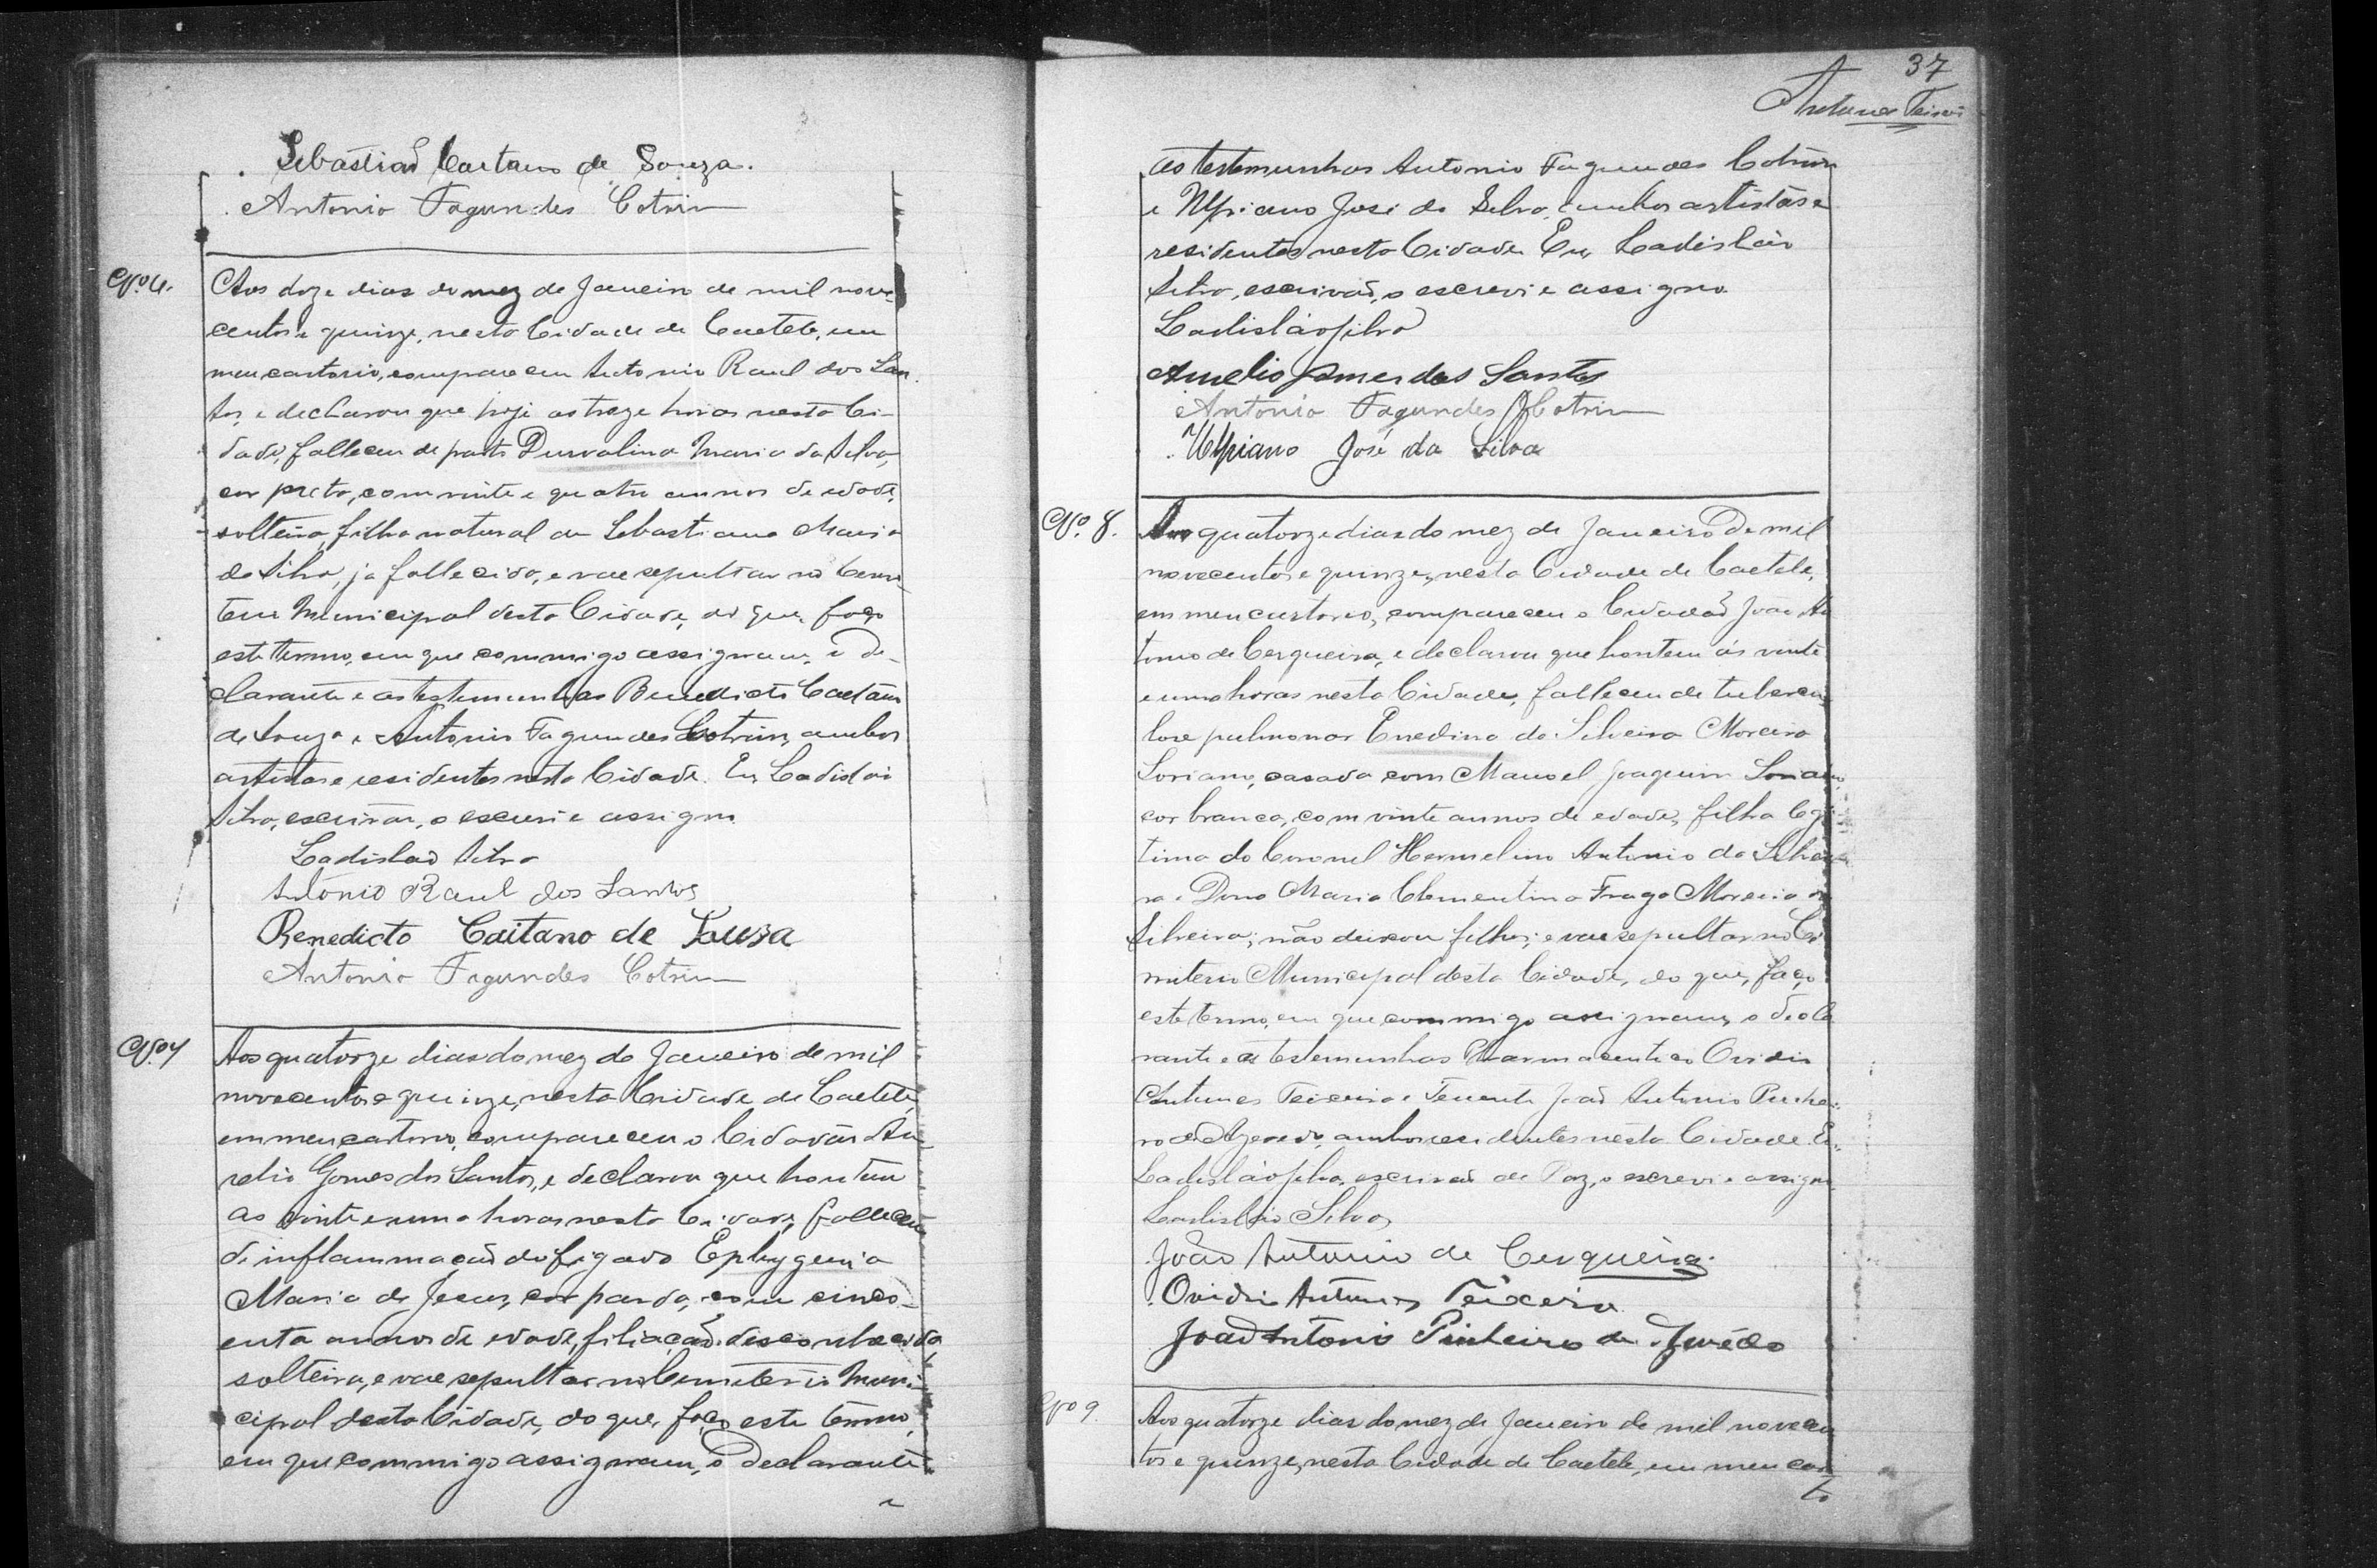 Sebastião Caetano de Souza.
Antonio Fagundes Cotrim
Nº 6.
Aos doze dias do mez de Janeiro de mil nove
centos e quinze, nesta Cidade de Caeteté, em
meu cartorio, compareceu Antonio Raul dos San
tos, e declarou que hoje as treze horas nesta Ci-
dade, falleceu de parto Durvalina Maria da Silva,
cor preta, com vinte e quatro annos de edade,
solteira, filha natural de Sebastiana Maria
da Silva, ja fallecida, e vae sepultar no Cemi
terio Municipal desta Cidade, do que, faço
este termo, em que commigo assignam, o de-
clarante e as testemunhas Benedicto Caetano
de Souza e Antonio Fagundes Cotrim, ambos
artistas e residentes nesta Cidade. Eu Ladisláo
Silva, escrivão, o escrevi e assigno.
Ladisláo Silva
Antonio Raul dos Santos
Benedicto Caitano de Souza
Antonio Fagundes Cotrim
Nº 7
Aos quatorze dias do mez de Janeiro de mil
novecentos e quinze, nesta Cidade de Caeteté,
em meu cartorio, compareceu o Cidadão Au
relio Gomes dos Santos, e declarou que hontem
as vinte e uma horas nesta Cidade, falleceu
de inflammação do figado Ephygenia
Maria de Jesus, cor parda, com cinco-
enta annos de edade, filiação desconhecida,
solteira, e vae sepultar no Cemiterio Muni-
cipal desta Cidade, do que, faço este termo,
em que commigo assignam, o Declarante
e
37
Antunes Teixeira
as testemunhas Antonio Fagundes Cotrim
e Ulpiano José da Silva, ambos artistas e
residentes nesta Cidade. Eu, Ladisláo
Silva, escrivão, o escrevi e assigno.
Ladisláo Silva
Aurelio Gomes dos Santos
Antonio Fagundes Cotrim
Ulpiano José da Silva
Nº 8.
Aos quatorze dias do mez de Janeiro de mil
novecentos e quinze, nesta Cidade de Caeteté,
em meu cartorio, compareceu o Cidadão João An
tonio de Cerqueira, e declarou que hontem ás vinte
e uma horas nesta Cidade, falleceu de tubercu
lose pulmonar Enedina da Silveira Moreira
Soriano, casada com Manoel Joaquim Soriano,
cor branca, com vinte annos de edade, filha legi
tima do Coronel Hermelino Antonio da Silvei
ra e Dona Maria Clementina Fraga Moreira da
Silveira; não deixou filhos; e vae sepultar no Ce
miterio Municipal desta Cidade, do que, faço
este termo, em que commigo assignam, o decla
rante e as testemunhas Pharmaceutico Ovidio
Antunes Teixeira e Tenente João Antonio Pinhei
ro de Azevedo, ambos residentes nesta Cidade. Eu
Ladisláo Silva, escrivão de Paz, o escrevi e assigno
Ladisláo Silva
João Antonio de Cerqueira.
Ovidio Antunes Teixeira
João Antonio Pinheiro de Azevêdo
Nº 9.
Aos quatorze dias do mez de Janeiro de mil novecen
tos e quinze, nesta Cidade de Caeteté, em meu car
to